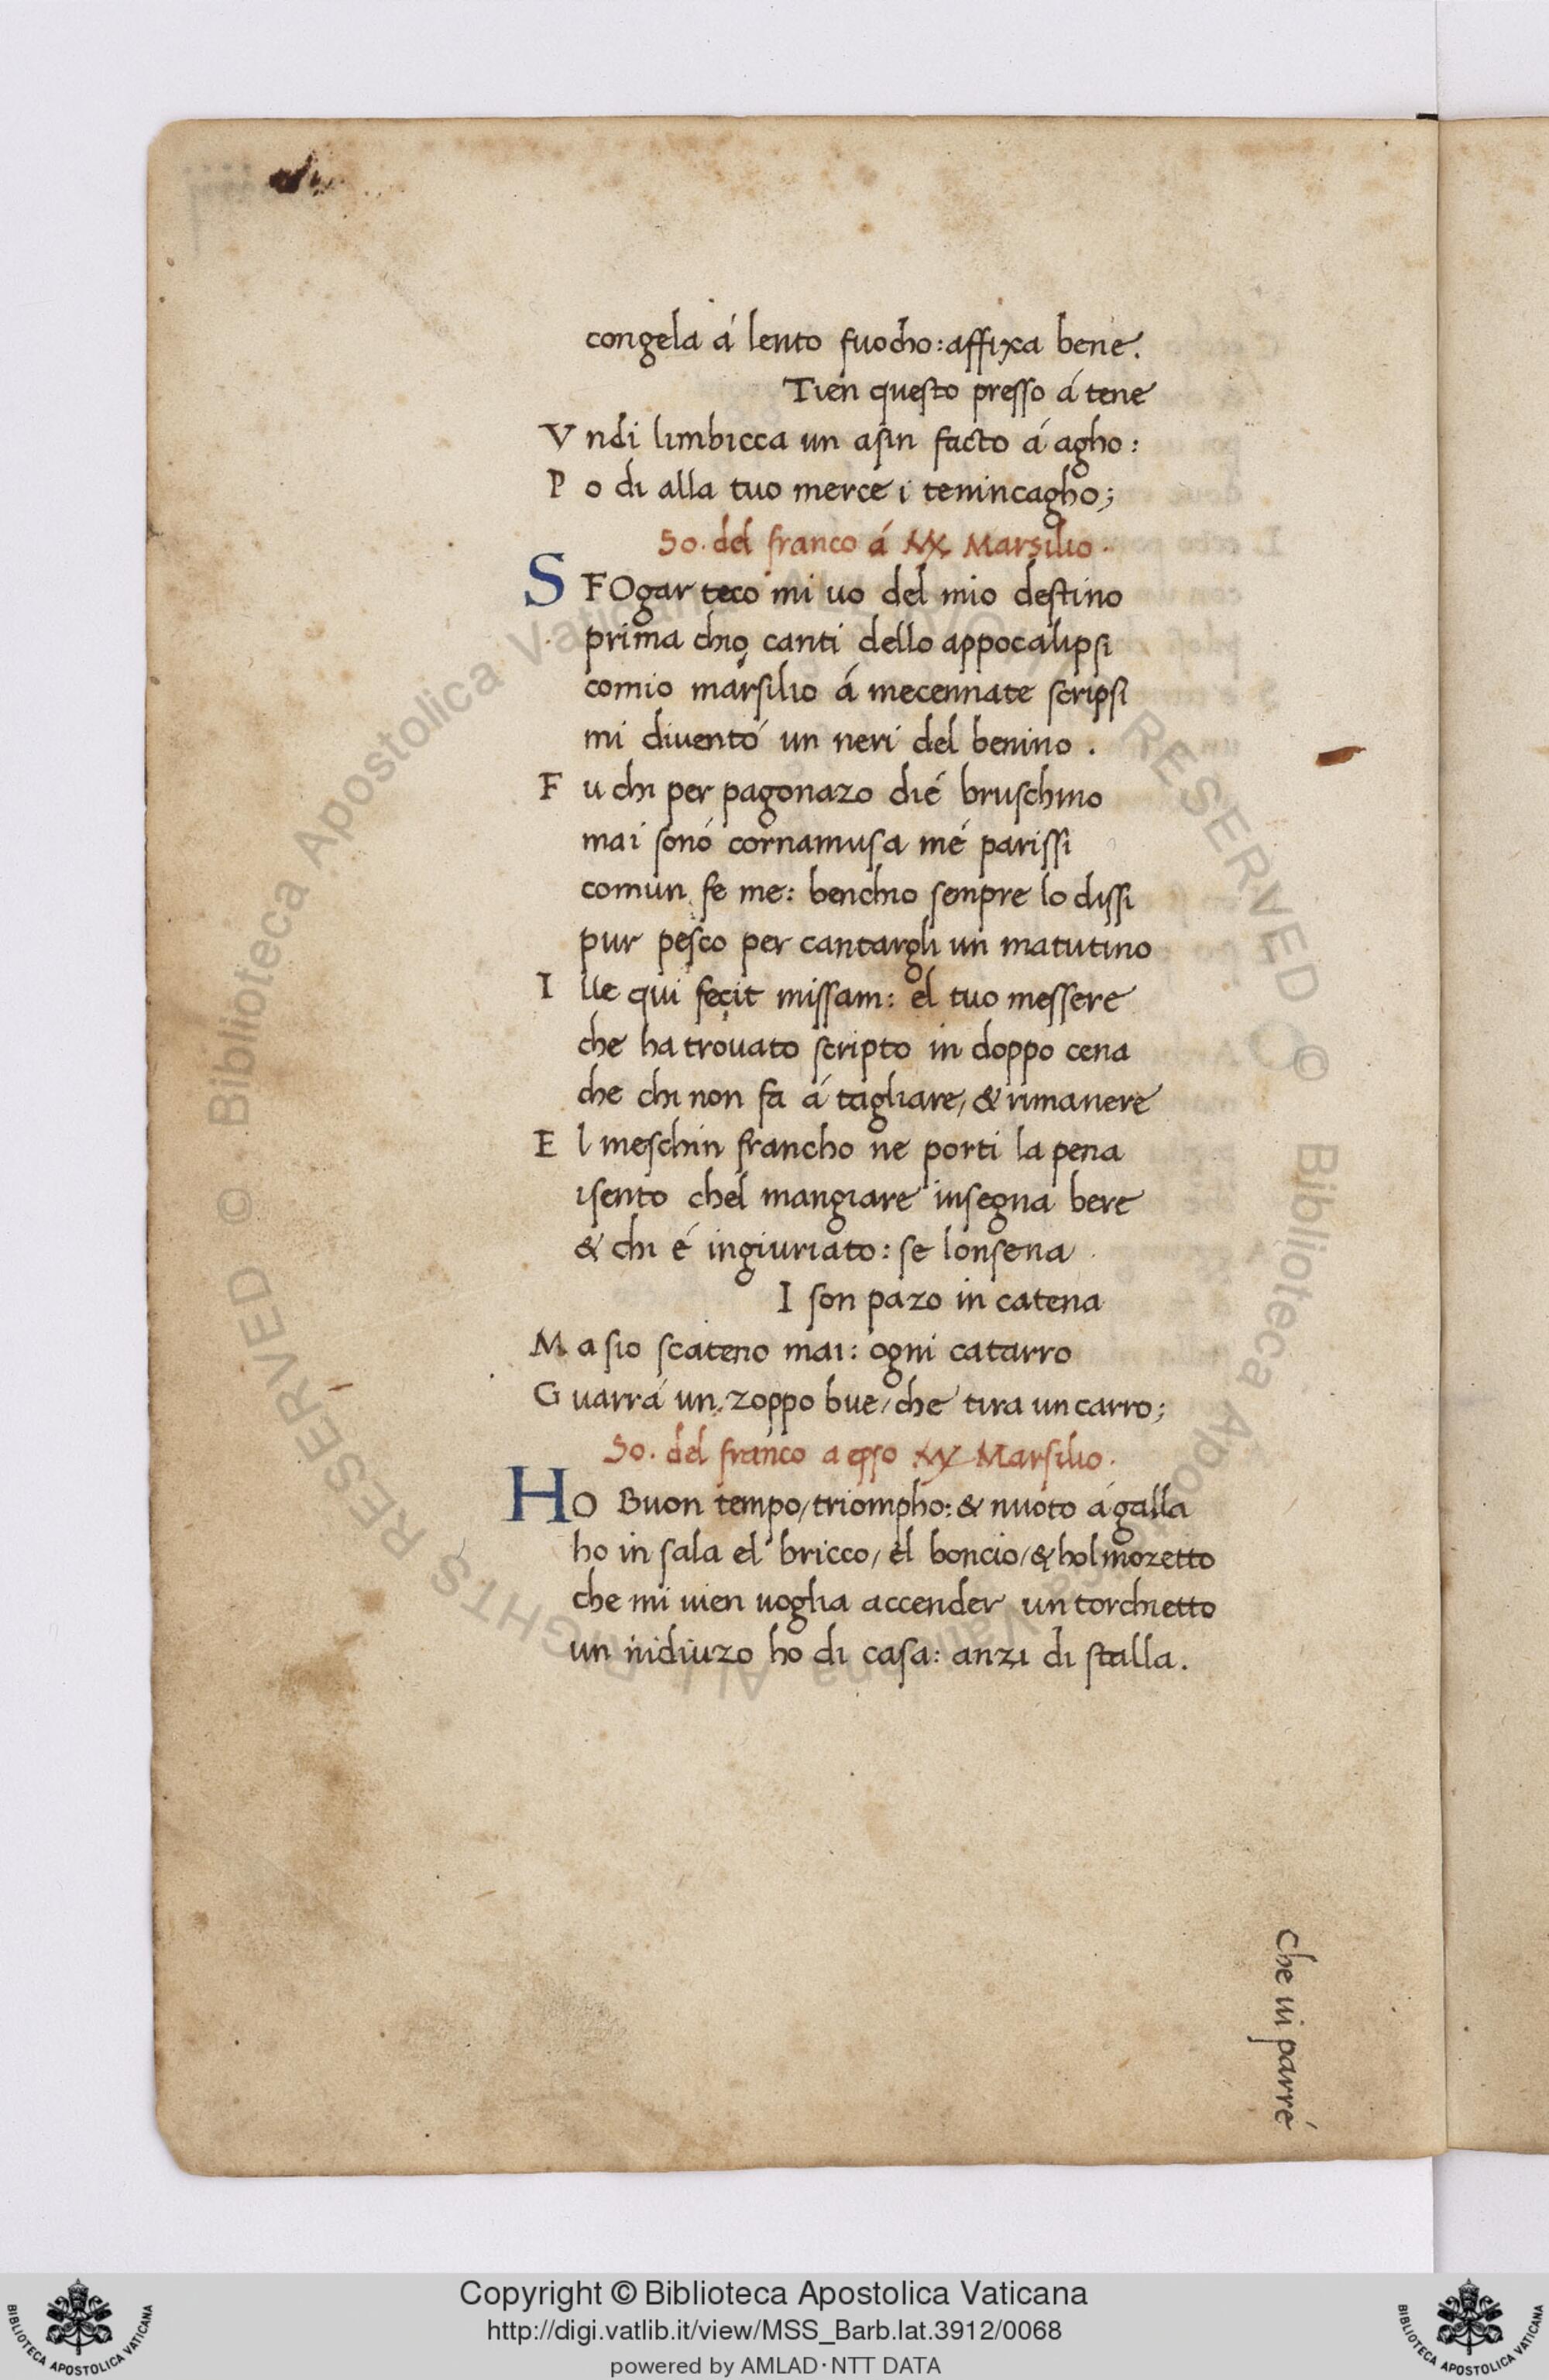 congela á lento fuocho: affixa bene.
Tien questo presso á tene
V ndi limbicca un asin facto á agho:
P o di alla tuo mercé i tenincagho;
So. del franco á Mẋ Marsilio.
S FOgar teco mi uo del mio destino
prima chio canti dello appocalipsi
comio marsilio á mecennate scripsi
mi diventó un neri del benino.
F u chi per pagonazo dié bruschino
mai sonó cornamusa mé parissi
comun fe me: benchio sempre lo dissi
pur pesco per cantargli un matutino
I lle qui fecit missam: el tuo messere
che ha trouato scripto in doppo cena
che chi non fa á tagliare, & rimanere
E l meschin francho ne porti la pena
isento chel mangiare insegna bere
& chi é ingiuriato: se lonsena
I son pazo in catena
M a sio scateno mai: ogni catarro
G uarrá un zoppo bue, che tira un carro;
So. del franco a epso Mẋ Marsilio.
HO Buon tempo, triompho: & nuoto á galla
ho in sala el bricco, el boncio, & hol mozetto
che mi uien uoglia accender un torchietto
un nidiuzo ho di casa: anzi di stalla.
che ui parré
Biblioteca Apostolica Vaticana ALL RIGHTS RESERVED ©
Copyright © Biblioteca Apostolica Vaticana
http://digi.vatlib.it/view/MSS_Barb.lat.3912/0068
powered by AMLAD·NTT DATA
BIBLIOTECA APOSTOLICA VATICANA
BIBLIOTECA APOSTOLICA VATICANA